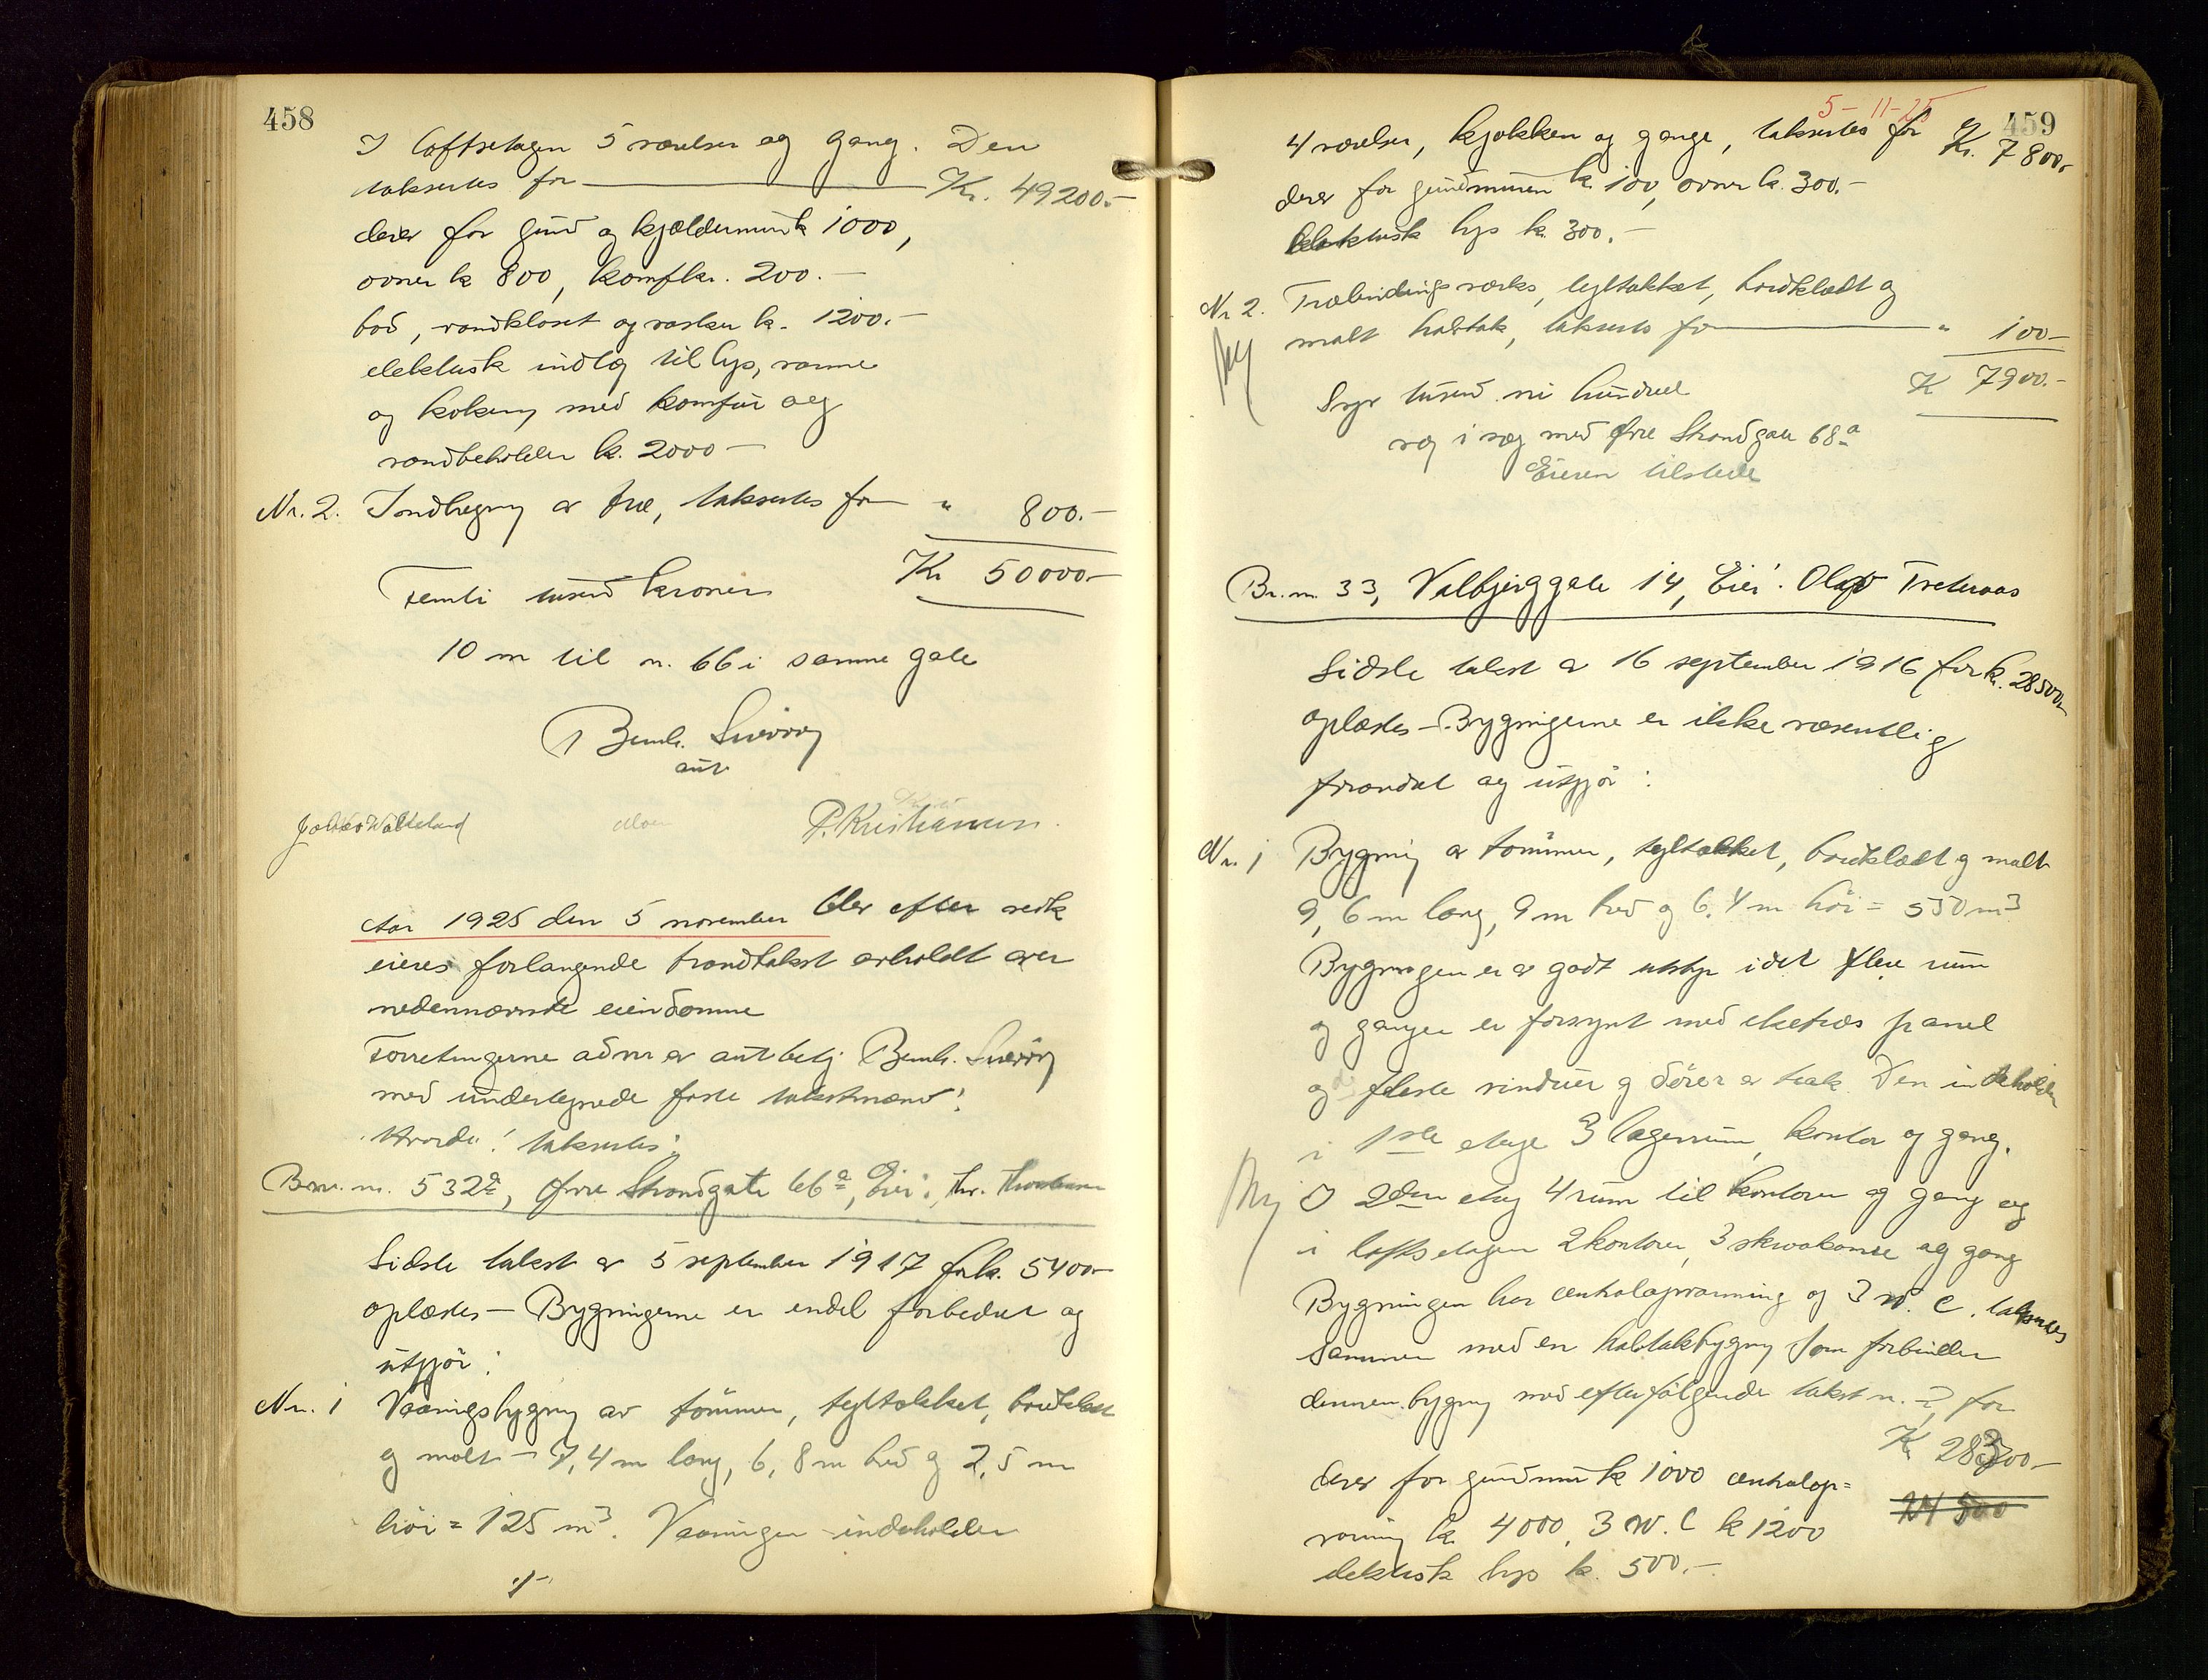 458
I loftsetagen 5 værelser og gang. Den
takseres for Kr. 49200.-
derav for grund og kjældermur k 1000,
ovner k 800, komf kr. 200.-
bad, vandkloset og vasker k. 1200.-
elektrisk indlæg til lys, varme
og kokning med komfur og
vandbeholder k. 2000-
Nr. 2. Indhegning av træ, takseres for " 800.-
Kr 50000.-
Femti tusend kroner
10 m til n. 66 i samme gate
Bernh.
aut
P. Kristiansen.
Aar 1925 den 5 november blev efter vedk
eieres forlangende brandtakst avholdt over
nedennævnte eiendomme
Forretningerne adm av aut betj. Bernh.
med undertegnede faste takstmænd:
Hvorda: takseres:
Br. n. 532a, Øvre Strandgate 66a, Eier: Thv.
Sidste takst av 5 september 1917 for k. 5400-
oplæstes - Bygningerne er endel forbedret og
utgjør:
Nr. 1 Vaaningsbygning av tømmer, tegltækket, bordklædt
og malt - 7,4 m lang, 6,8 m bred og 2,5 m
høi = 125 m3. Vaaningen indeholder
./-
5-11-25
459
4 værelser, kjøkken og gange, takseres for Kr. 7800.-
derav for grundmuren k. 100, ovner k. 300.-
elektrisk lys k. 300.-
Nr 2. Træbindingsværks, tegltækket, bordklædt og
malt halvtak, takseres for " 100.-
K 7900.-
Syv tusend ni hundred
væg i væg med Øvre Strandgate 68a
Eieren tilstede
Br. n. 33, Valbjerggate 14, Eier: Olav Tveteraas
Sidste takst av 16 september 1916 for k. 28500.-
oplæstes - Bygningerne er ikke væsentlig
forandret og utgjør:
Nr. 1 Bygning av tømmer, tegltækket, bordklædt og malt
9,6 m lang, 9 m bred og 6,4 m høi = 550 m3
Bygningen er av godt utstyr idet flere rum
og gangen er forsynt med eketræs panel
og fleste vinduer og dører av teak. Den indeholder
i 1ste etage 3 lagerrum, kontor og gang.
I 2den etag 4 rum til kontorer og gang og
i loftsetagen 2 kontorer, 3 skraakamre og gang
Bygningen har centralopvarmning og 3 W. C. takseres
sammen med en halvtakbygning som forbinder
denne bygning med efterfølgende takst n. 2, for
Kr 28300.-
derav for grundmur k 1000 centralop=
varmning k. 4000, 3 W. C k 1200
24 500
elektrisk lys k. 500.-